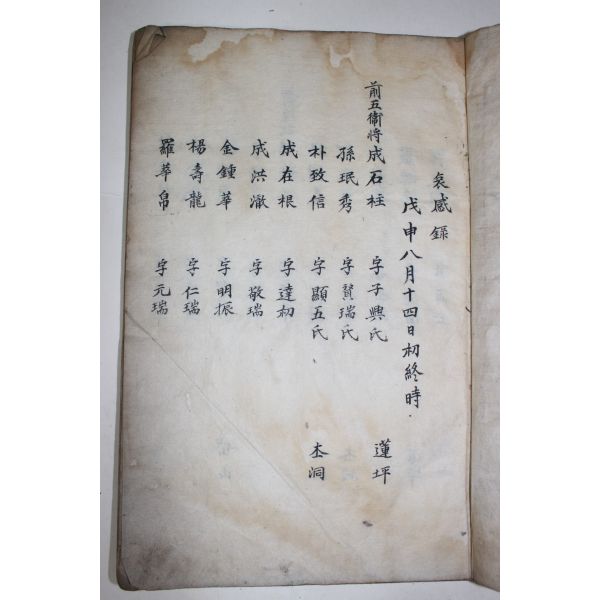 哀感錄
戊申八月十四日初終時
前五衛將成石柱 字子興氏 蓮坪
孫珉秀 字賛瑞氏
朴致信 字顯五氏 本洞
成在根 字達初
成洪澈 字敬瑞
金鍾華 字明振
楊壽龍 字仁瑞
羅華帛 字元瑞